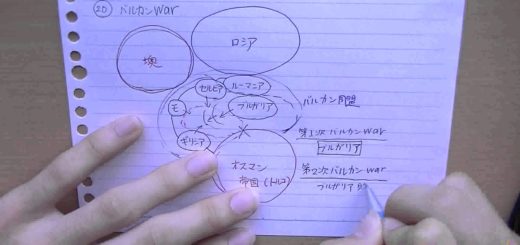 ⑳ バルカンwar
ロシア
墺
セルビア
ルーマニア
ブルガリア
モ
ギリシア
バルカン同盟
オスマン
帝国(トルコ)
第1次バルカンwar
ブルガリア
第2次バルカンwar
ブルガリア